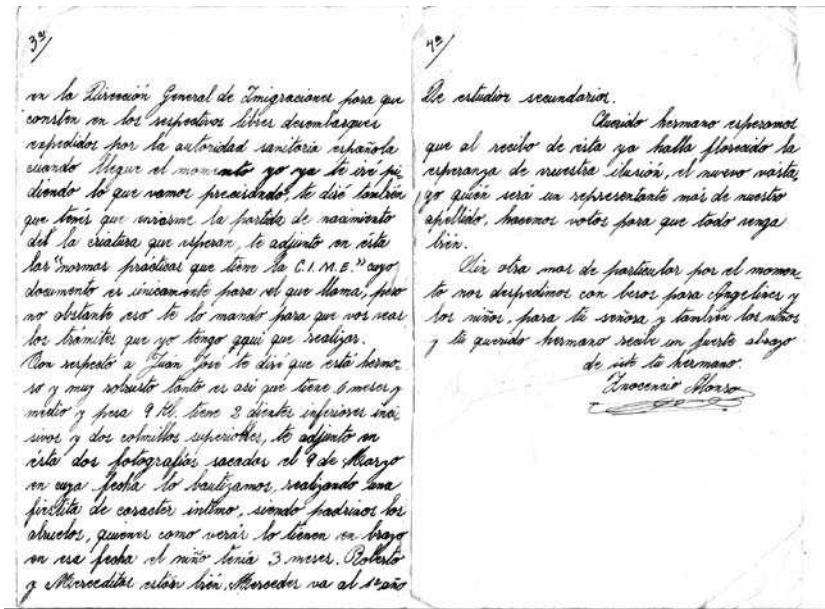 3ª/
en la Dirección General de Imigraciones para que
consten en los respectivos libres desembarques
expedidos por la autoridad sanitaria española
cuando llegue el momento yo ya te iré pi-
diendo lo que vamos precisando, te diré también
que tenes que enviarme la partida de nacimiento
del la criatura que esperan, te adjunto en ésta
las "normas prácticas que tiene la C.I.M.E." cuyo
documento es únicamente para el que llama, pero
no obstante eso te lo mando para que vos veas
los trámites que yo tengo aquí que realizar.
Con respecto a Juan José te diré que está hermo-
so y muy robusto tanto es asi que tiene 6 meses y
medio y pesa 9 Kl. tiene 2 dientes inferiores inci-
sivos y dos colmillos superiores, te adjunto en
ésta dos fotografías sacadas el 9 de Marzo
en cuya fecha lo bautizamos, realizando una
fiestita de caracter intimo, siendo padrinos los
abuelos, quienes como verás lo tienen en brazo
en esa fecha el niño tenía 3 meses. Roberto
y Merceditas están bién, Mercedes va al 1º año
4ª/
De estudios secundarios.
Querido hermano esperamos
que al recibo de ésta ya halla florecido la
esperanza de vuestra ilusión, el nuevo vásta-
go quién será un representante más de nuestro
apellido, hacemos votos para que todo venga
bién.
Sin otra mas de particular por el momen-
to nos despedimos con besos para Angelines y
los niños, para tú señora y también los niños
y tú querido hermano recibe un fuerte abrazo
de éste tu hermano.
Inocencio Alonso